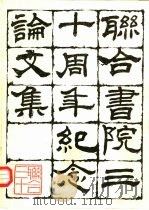 聯合書院三
十周年紀念
論文集